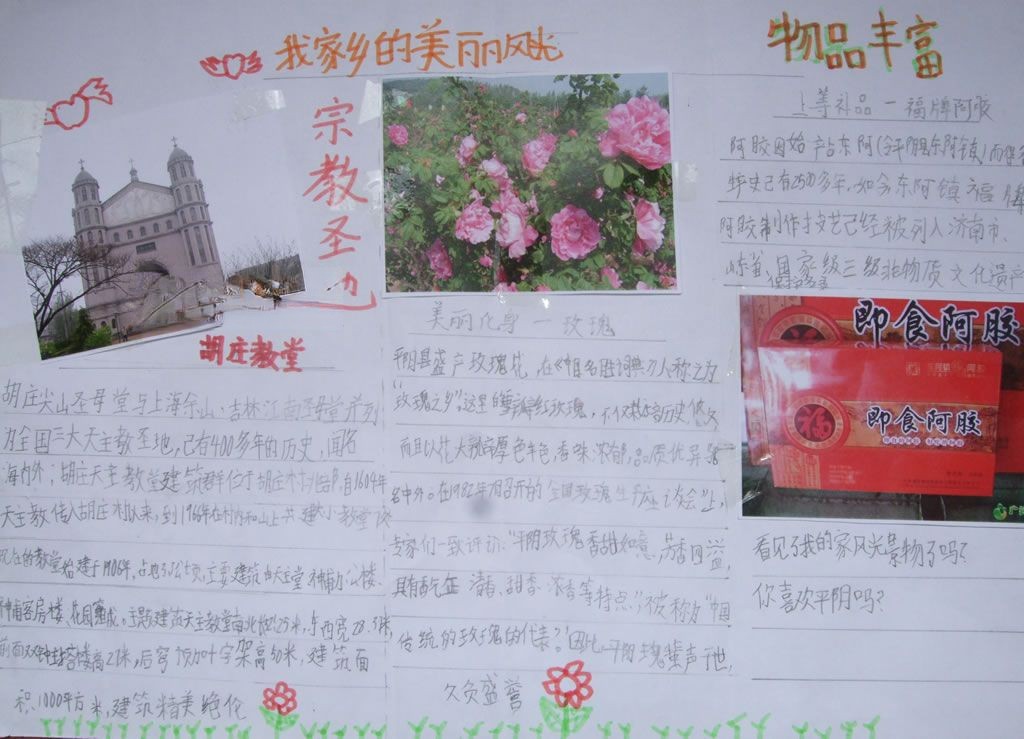 我家乡的美丽风光
物品丰富
宗教圣地
胡庄教堂
胡庄尖山圣母堂与上海佘山、吉林江南圣母堂并列
为全国三大天主教圣地,已有400多年的历史,闻名
海内外;胡庄天主教堂建筑群位于胡庄村北部,自1604年
天主教传入胡庄村以来,到1966年在村内和山上共建大小教堂
现在的教堂始建于1906年,占地3.5公顷,主要建筑由天主堂、神甫办公楼、
神甫客房楼、花园组成。主题建筑天主教堂南北长25米,东西宽28.3米,
前面双钟塔楼高21米,后穹顶加十字架高30米,建筑面
积1000平方米,建筑精美绝伦
美丽化身一玫瑰
平阴县盛产玫瑰花,在《中国名胜词典》以称之为
"玫瑰之乡"。这里的重瓣红玫瑰,不仅栽培历史悠久
而且以花大瓣厚色丰色,香味浓郁,品质优异
名中外。在1982年召开的全国玫瑰生产座谈会上,
专家们一致评价:"平阴玫瑰香甜如意,芳香四溢,
具有香气 清香、甜香、浓香等特点。"被称为"中国
传统的玫瑰的代表"。因此平阴玫瑰蜚声于世,
久负盛誉
上等补品一福牌阿胶
阿胶因始产古东阿(今平阴县东阿镇)而得名
历史已有2500多年,如今东阿镇福牌
阿胶制作技艺已经被列入济南市、
山东省、国家级三级非物质文化遗产
保护名录
即食阿胶
福
即食阿胶
看见了我的家风光景物了吗?
你喜欢平阴吗?